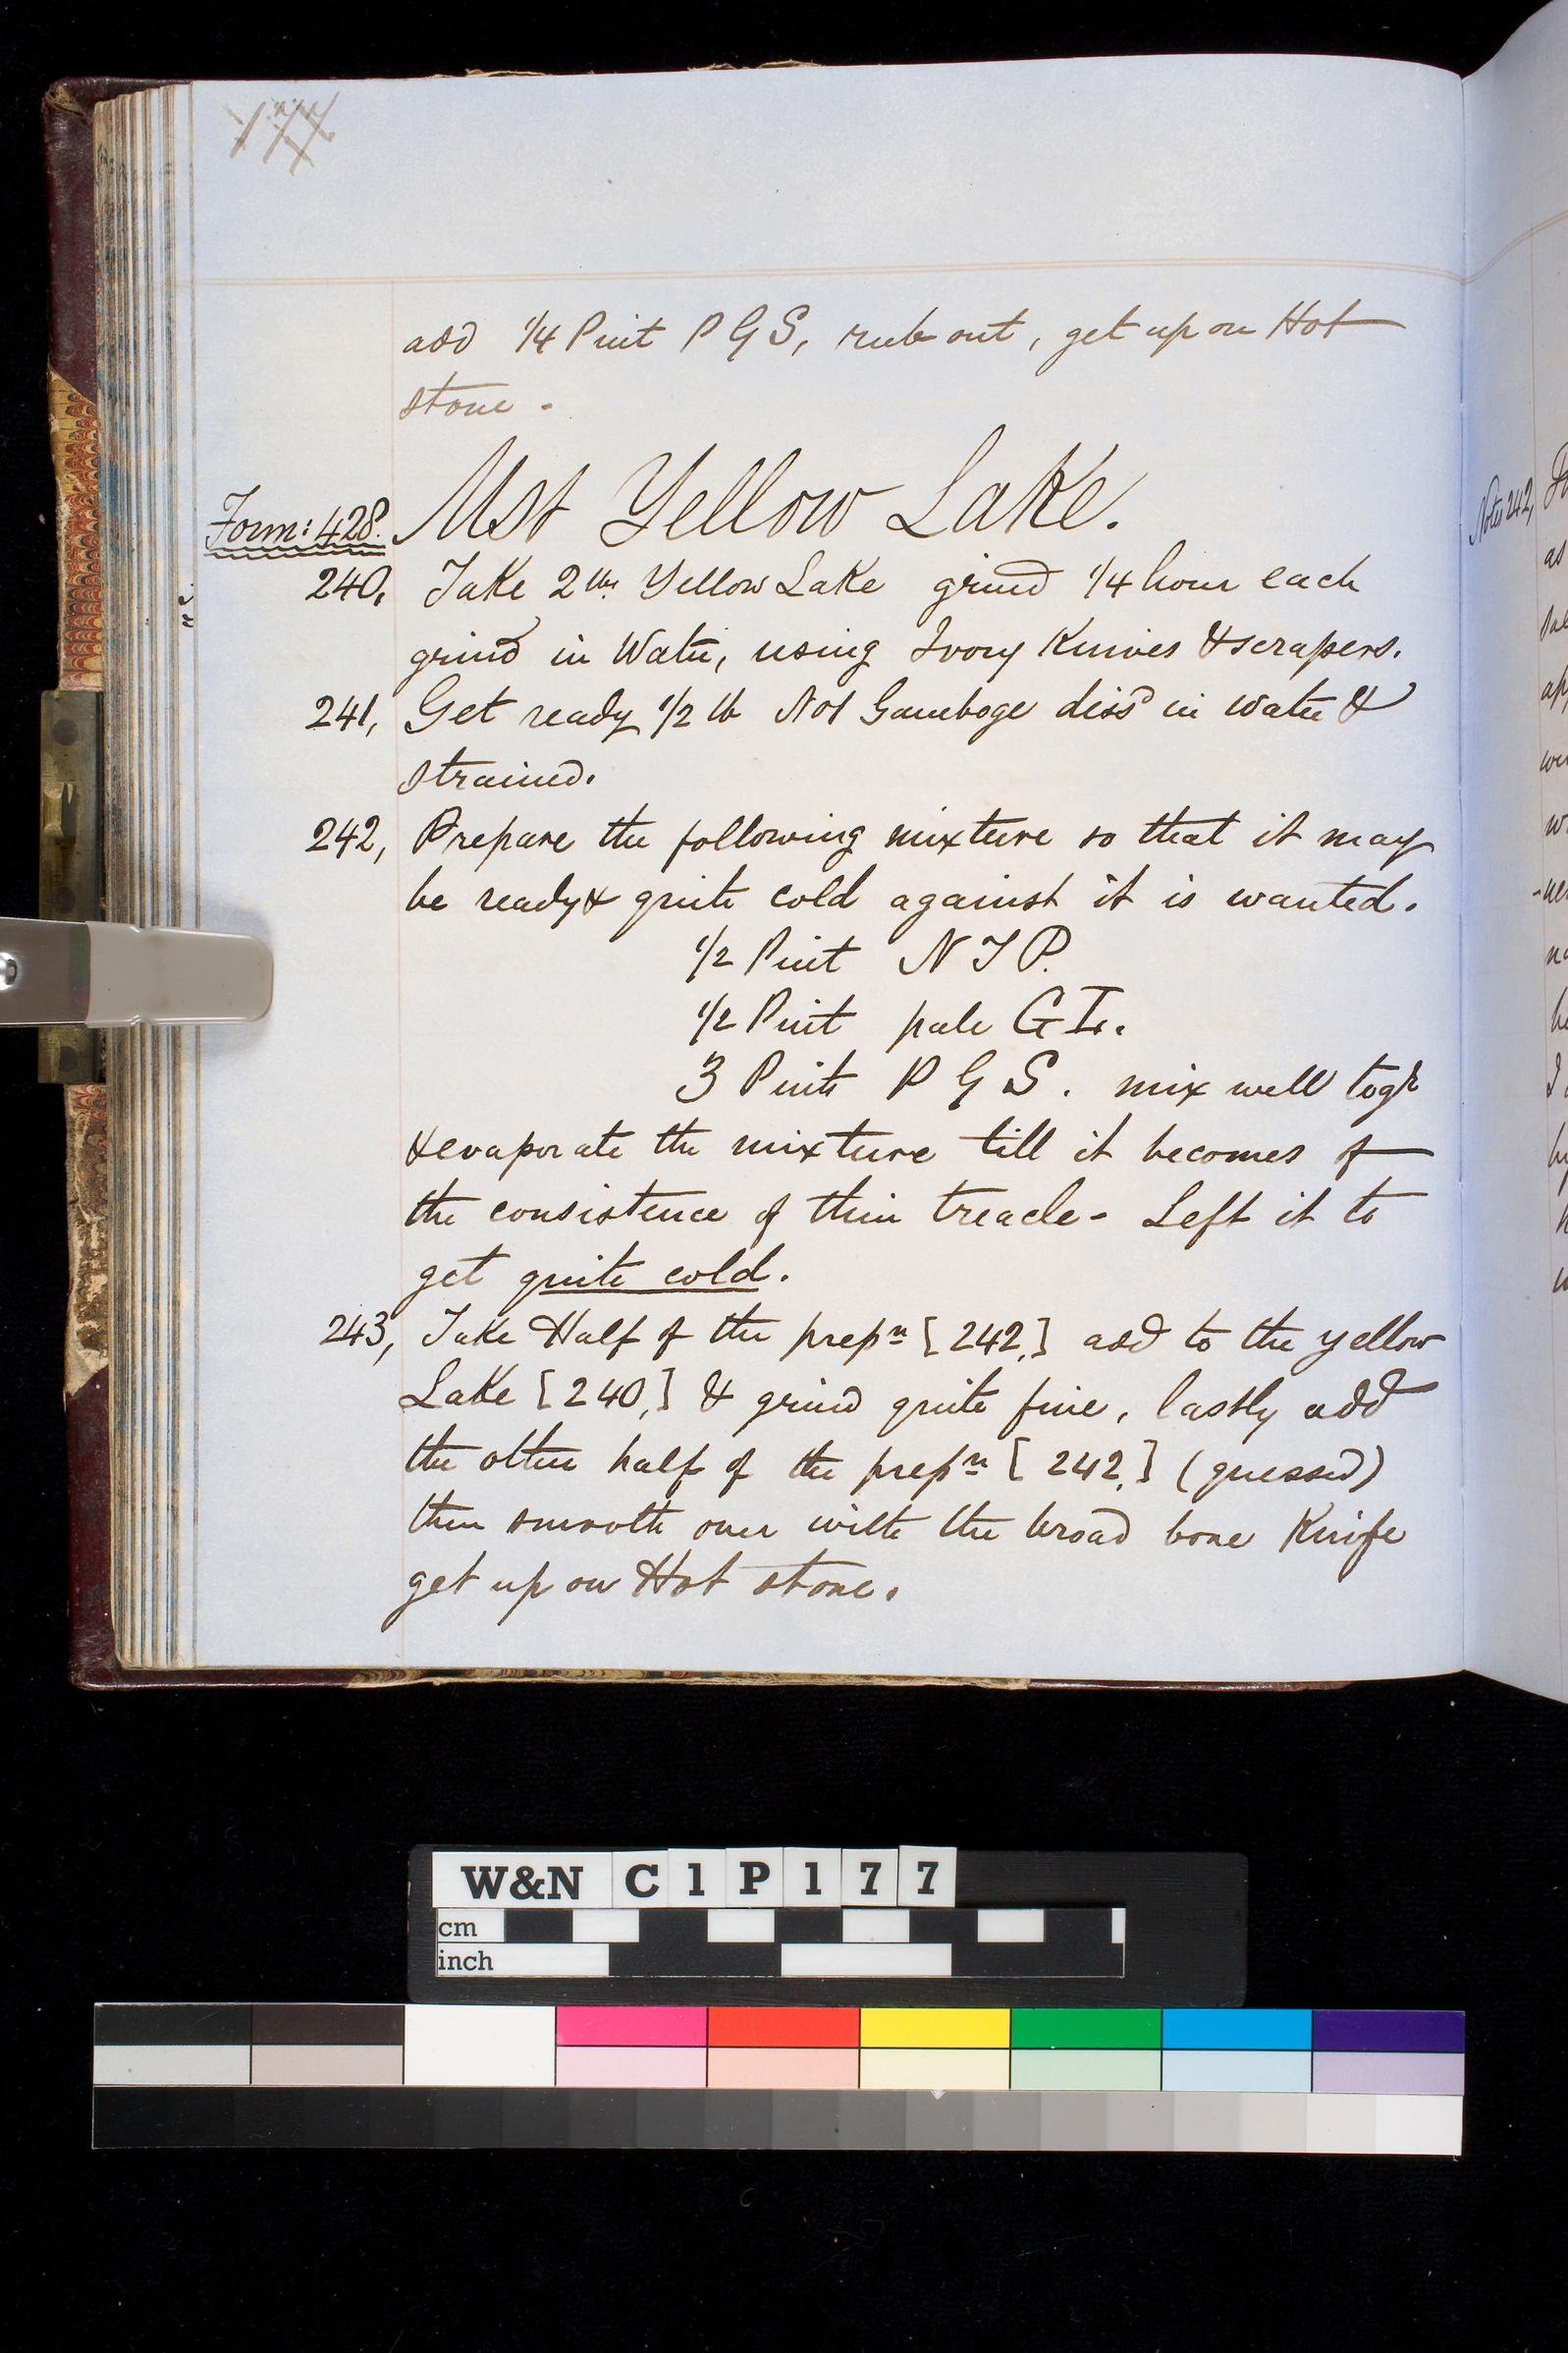 177
add 1/4 Pint P G S, rub out, get up on Hot
stone -
Form: 428. Mst Yellow Lake.
240, Take 2 lbs Yellow Lake grind 1/4 hour each
grind in Water, using Ivory Knives & scrapers.
241, Get ready 1/2 lb No1 Gamboge dissd in water &
strained.
242, Prepare the following mixture so that it may
be ready & quite cold against it is wanted.
1/2 Pint N T P.
1/2 Pint pale G
3 Pints P G S. mix well togr
& evaporate the mixture till it becomes of
the consistence of thin treacle - Left it to
get quite cold.
243, Take Half of the prepn [242,] add to the yellow
Lake [240,] & grind quite fine, lastly add
the other half of the prepn [242,] (guessed)
then smooth over with the broad bone Knife
get up on Hot stone.
Note 242,
as
W&N C1P177
cm
inch